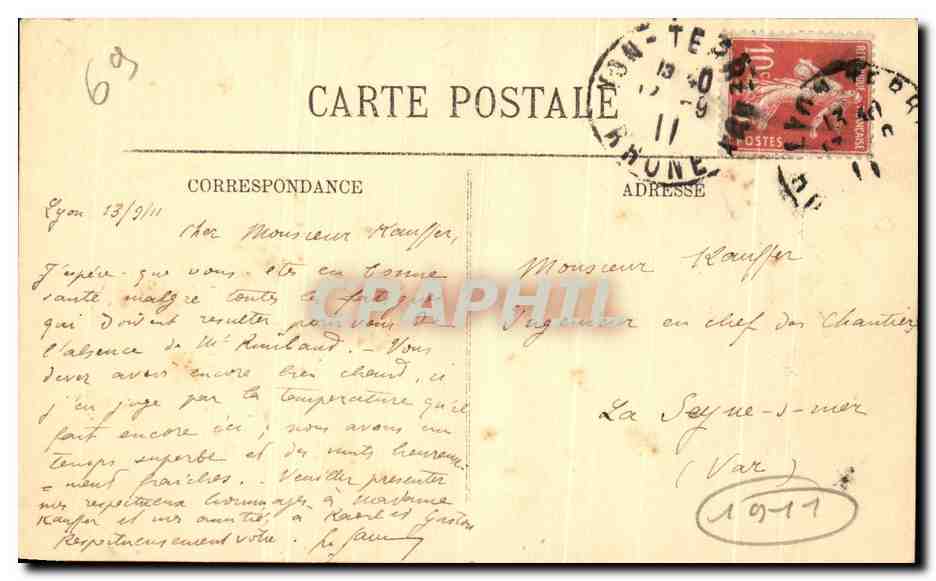 69
CARTE POSTALE
LYON-TERREAUX
13 40
12 -9
11
RHONE
10c
REPUBLIQUE FRANCAISE
POSTES
CORRESPONDANCE
ADRESSE
Lyon 13/9/11
Cher Monsieur Kauffer,
J'espère que vous êtes en bonne
santé, malgré toutes les fatigues
qui doivent resulter pour vous de
l'absence de Mr Rimbaud. - Vous
devez avoir encore bien chaud, si
j'en juge par la température qu'il
fait encore ici; nous avons un
temps superbe et des nuits heureuse-
=ment fraîches. - Veuillez presenter
mes respectueux hommages à Madame
Kauffer et mes amitiés à Karl et Gaston
Respectueusement votre.
Monsieur Kauffer
Ingenieur en chef des Chantiers
La Seyne-s-mer
(Var)
1911
CPAPHIL